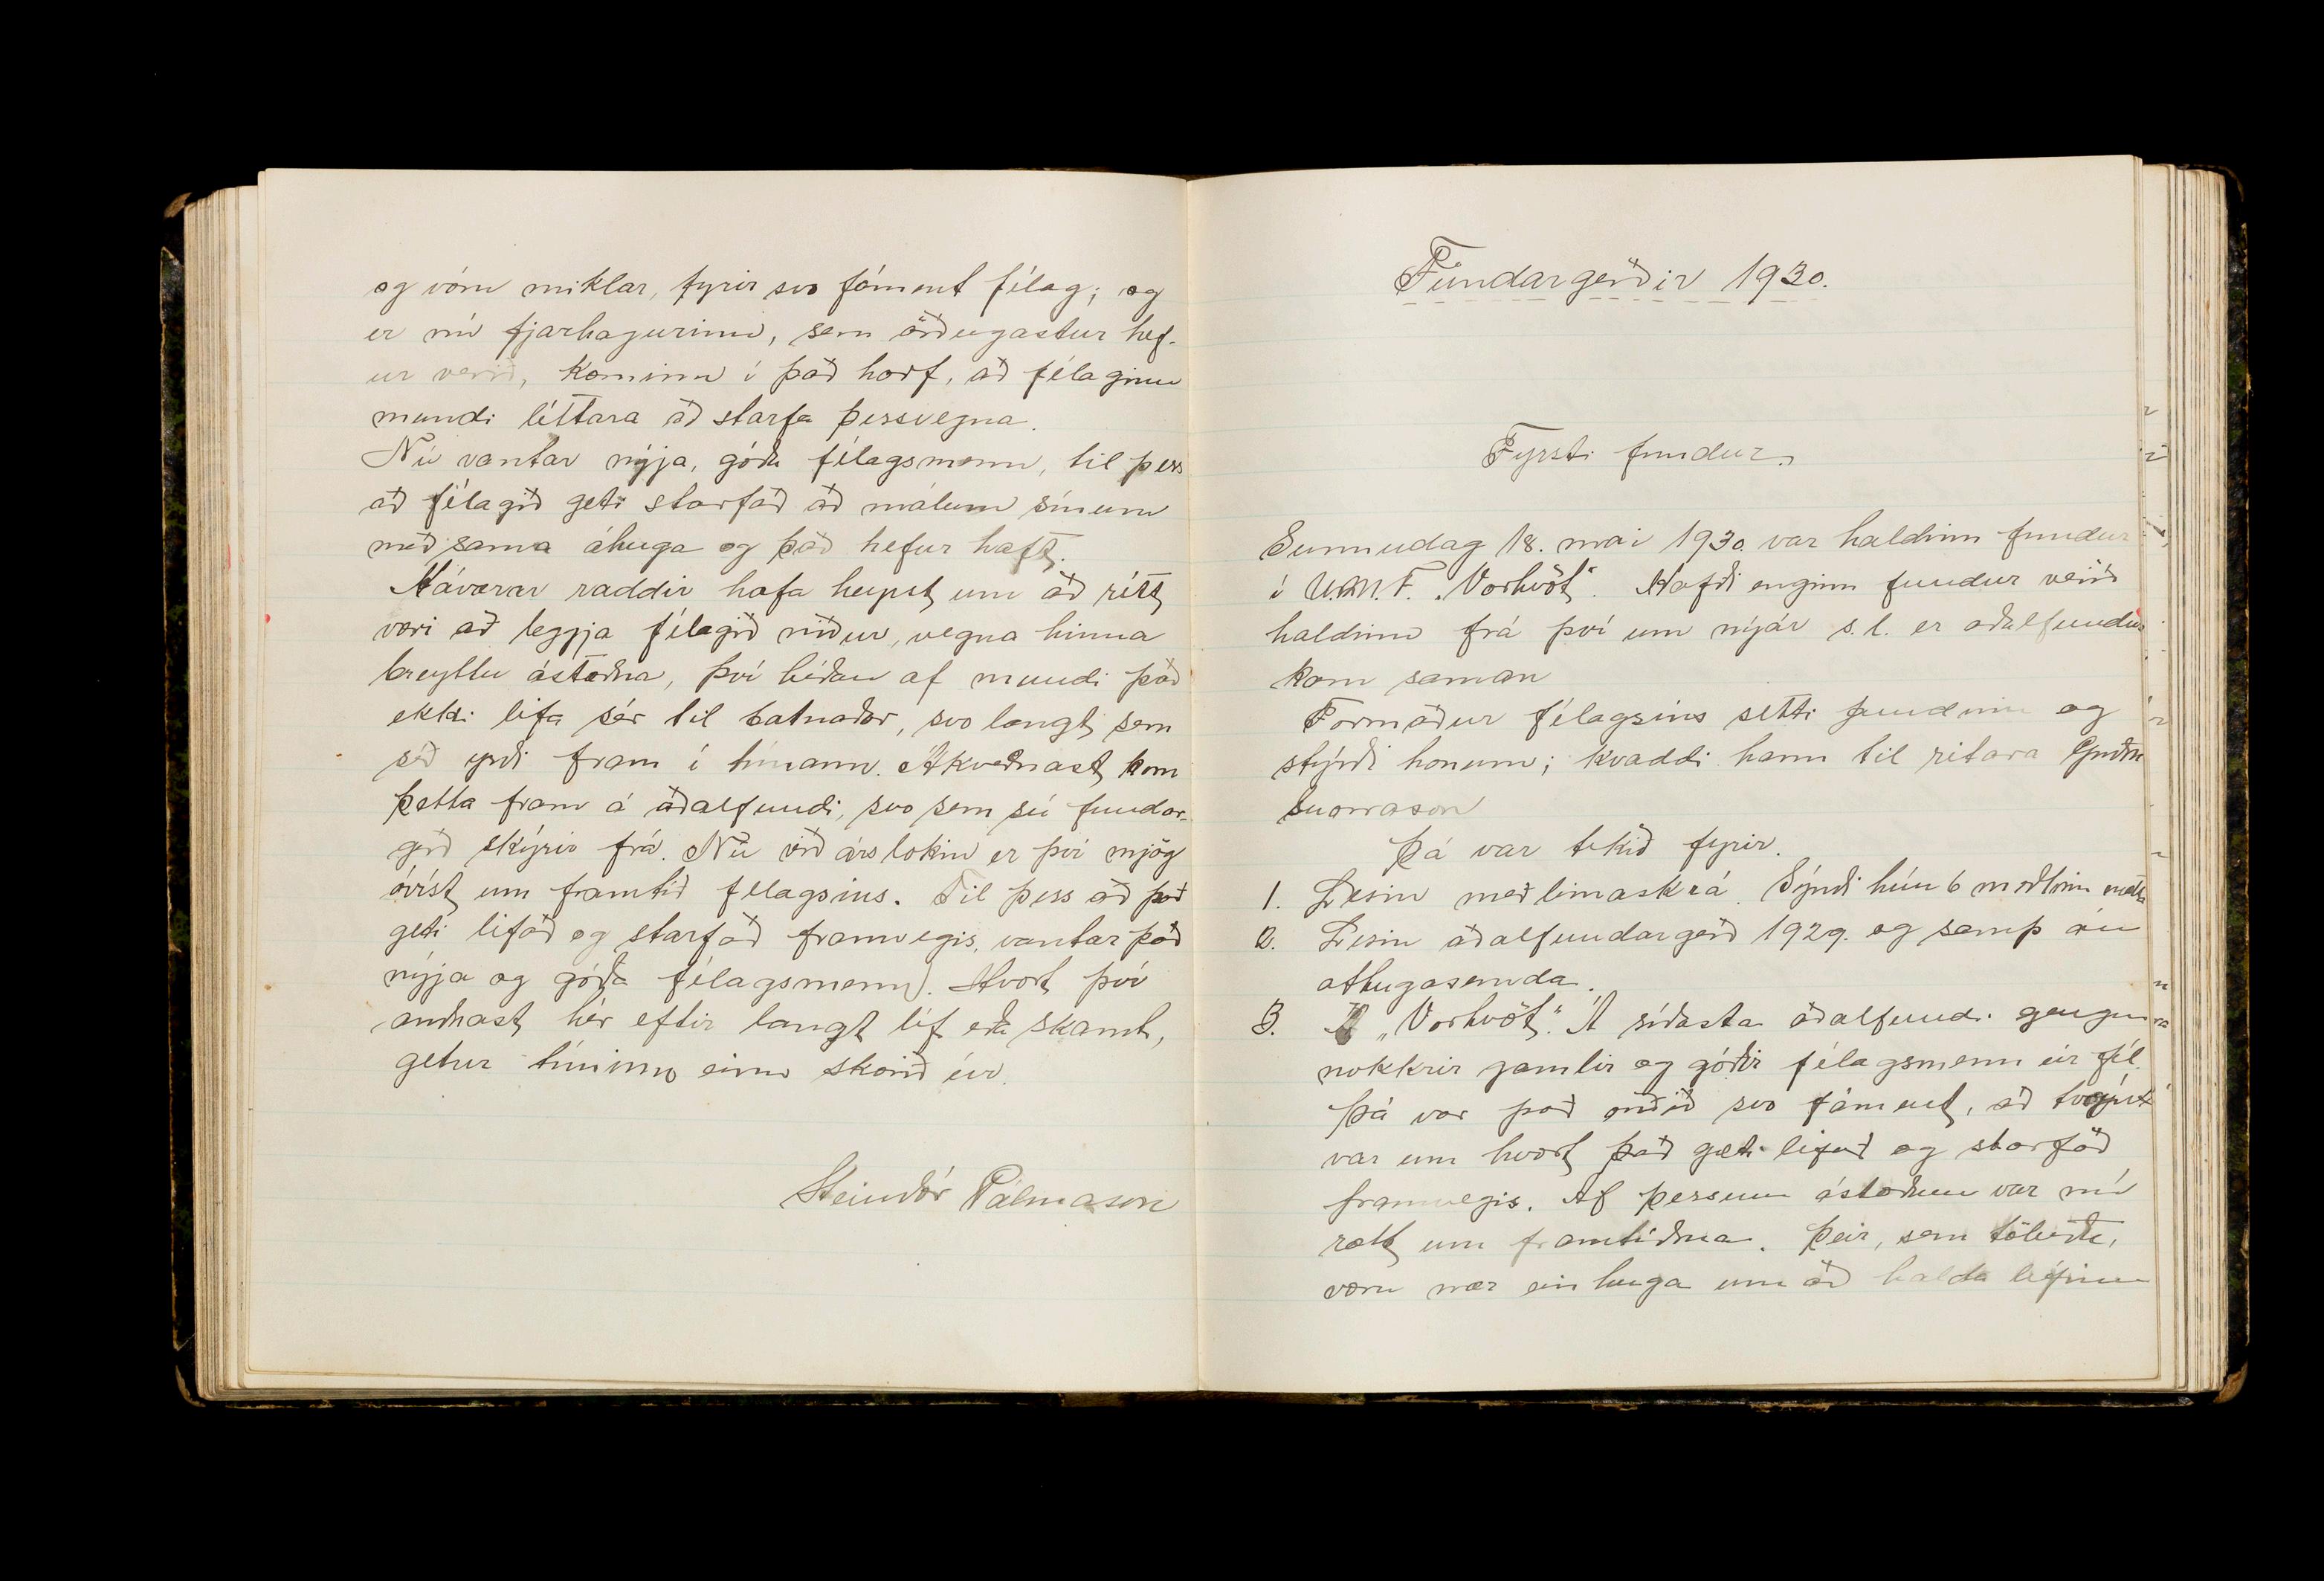 og vóru miklar, fyrir svo fáment félag; og
er nú fjarhagurinn, sem örðugastur hef-
ur verið, kominn í það horf, að félaginu
mundi léttara að starfa þessvegna.
Nú vantar nýja, góða félagsmenn, til þess
að félagið geti starfað að málum sínum
með sama áhuga og það hefur haft.
Háværar raddir hafa heyrst um að rétt
væri að leggja félagið niður, vegna hinna
breyttu ástæðna, því héðan af mundi það
ekki lifa sér til batnaðar, svo langt sem
séð yrði fram í tímann. Ákveðnast kom
þetta fram á aðalfundi, svo sem sú fundar-
gerð skýrir frá. Nú við árslokin er því mjög
óvíst um framtíð félagsins. Til þess að það
geti lifað og starfað framvegis, vantar það
nýja og góða félagsmenn. Hvort því
auðnast hér eftir langt líf eða skamt,
getur tíminn einn skorið úr.
Steindór Pálmason
Fundargerðir 1930.
Fyrsti fundur.
Sunnudag 18. mai 1930 var haldinn fundur
í U.M.F. „Vorhvöt“. Hafði enginn fundur verið
haldinn frá því um nýár s.l. er aðalfundur
kom saman
Formaður félagsins setti fundinn og
stýrði honum; kvaddi hann til ritara
Snorrason
Þá var tekið fyrir.
1. Lesin meðlimaskrá. Sýndi hún 6 meðlimi mætta
2. Lesin aðalfundargerð 1929. og samþ án
athugasemda.
3. „Vorhvöt“. Á síðasta aðalfundi gengu
nokkrir gamlir og góðir félagsmenn úr fél.
Þá var það orðið svo fáment, að tvísýnt
var um hvort það gæti lifað og starfað
framvegis. Af þessum ástæðum var nú
rætt um framtíðina. Þeir, sem töluðu,
voru nær einhuga um að halda lífinu